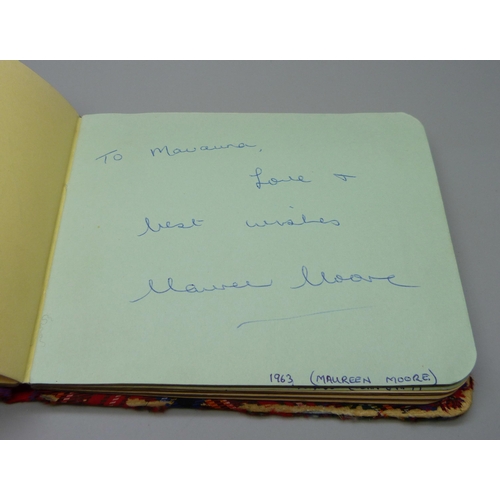 To
Love &
best wishes
Maureen Moore
1963 (MAUREEN MOORE)